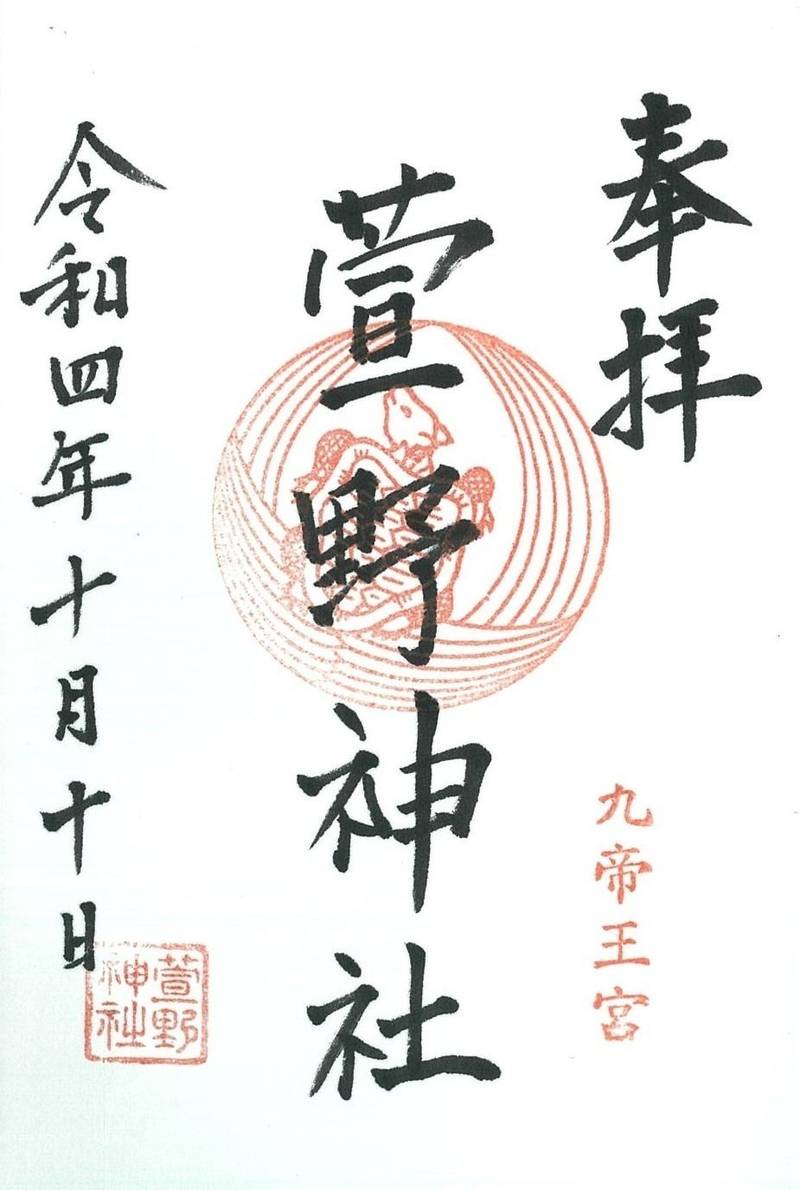 奉拝
九帝王宮
萱野神社
令和四年十月十日
萱野
神社